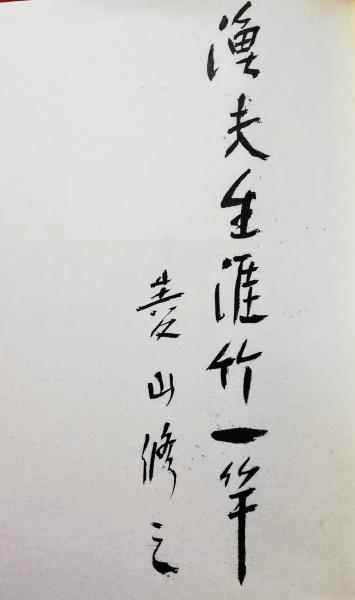 漁夫生涯竹一竿
山修之